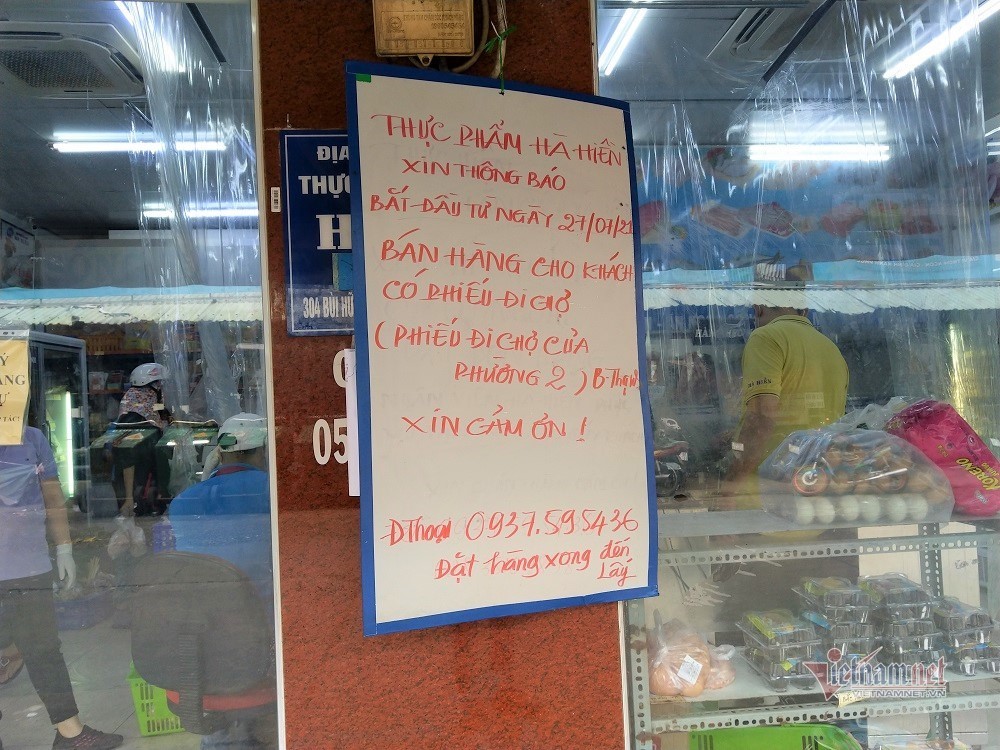 THỰC PHẨM HÀ HIỀN
XIN THÔNG BÁO
BẮT ĐẦU TỪ NGÀY 27/07/21
BÁN HÀNG CHO KHÁCH
CÓ PHIẾU ĐI CHỢ
(PHIẾU ĐI CHỢ CỦA
PHƯỜNG 2) B-Thạnh
XIN CẢM ƠN!
Đ Thoại 0937.595436
Đặt hàng xong đến
Lấy
ĐỊA
THỰC
H
304 BÙI HỮ
05
KORENO
Vietnamnet
VIETNAMNET.VN